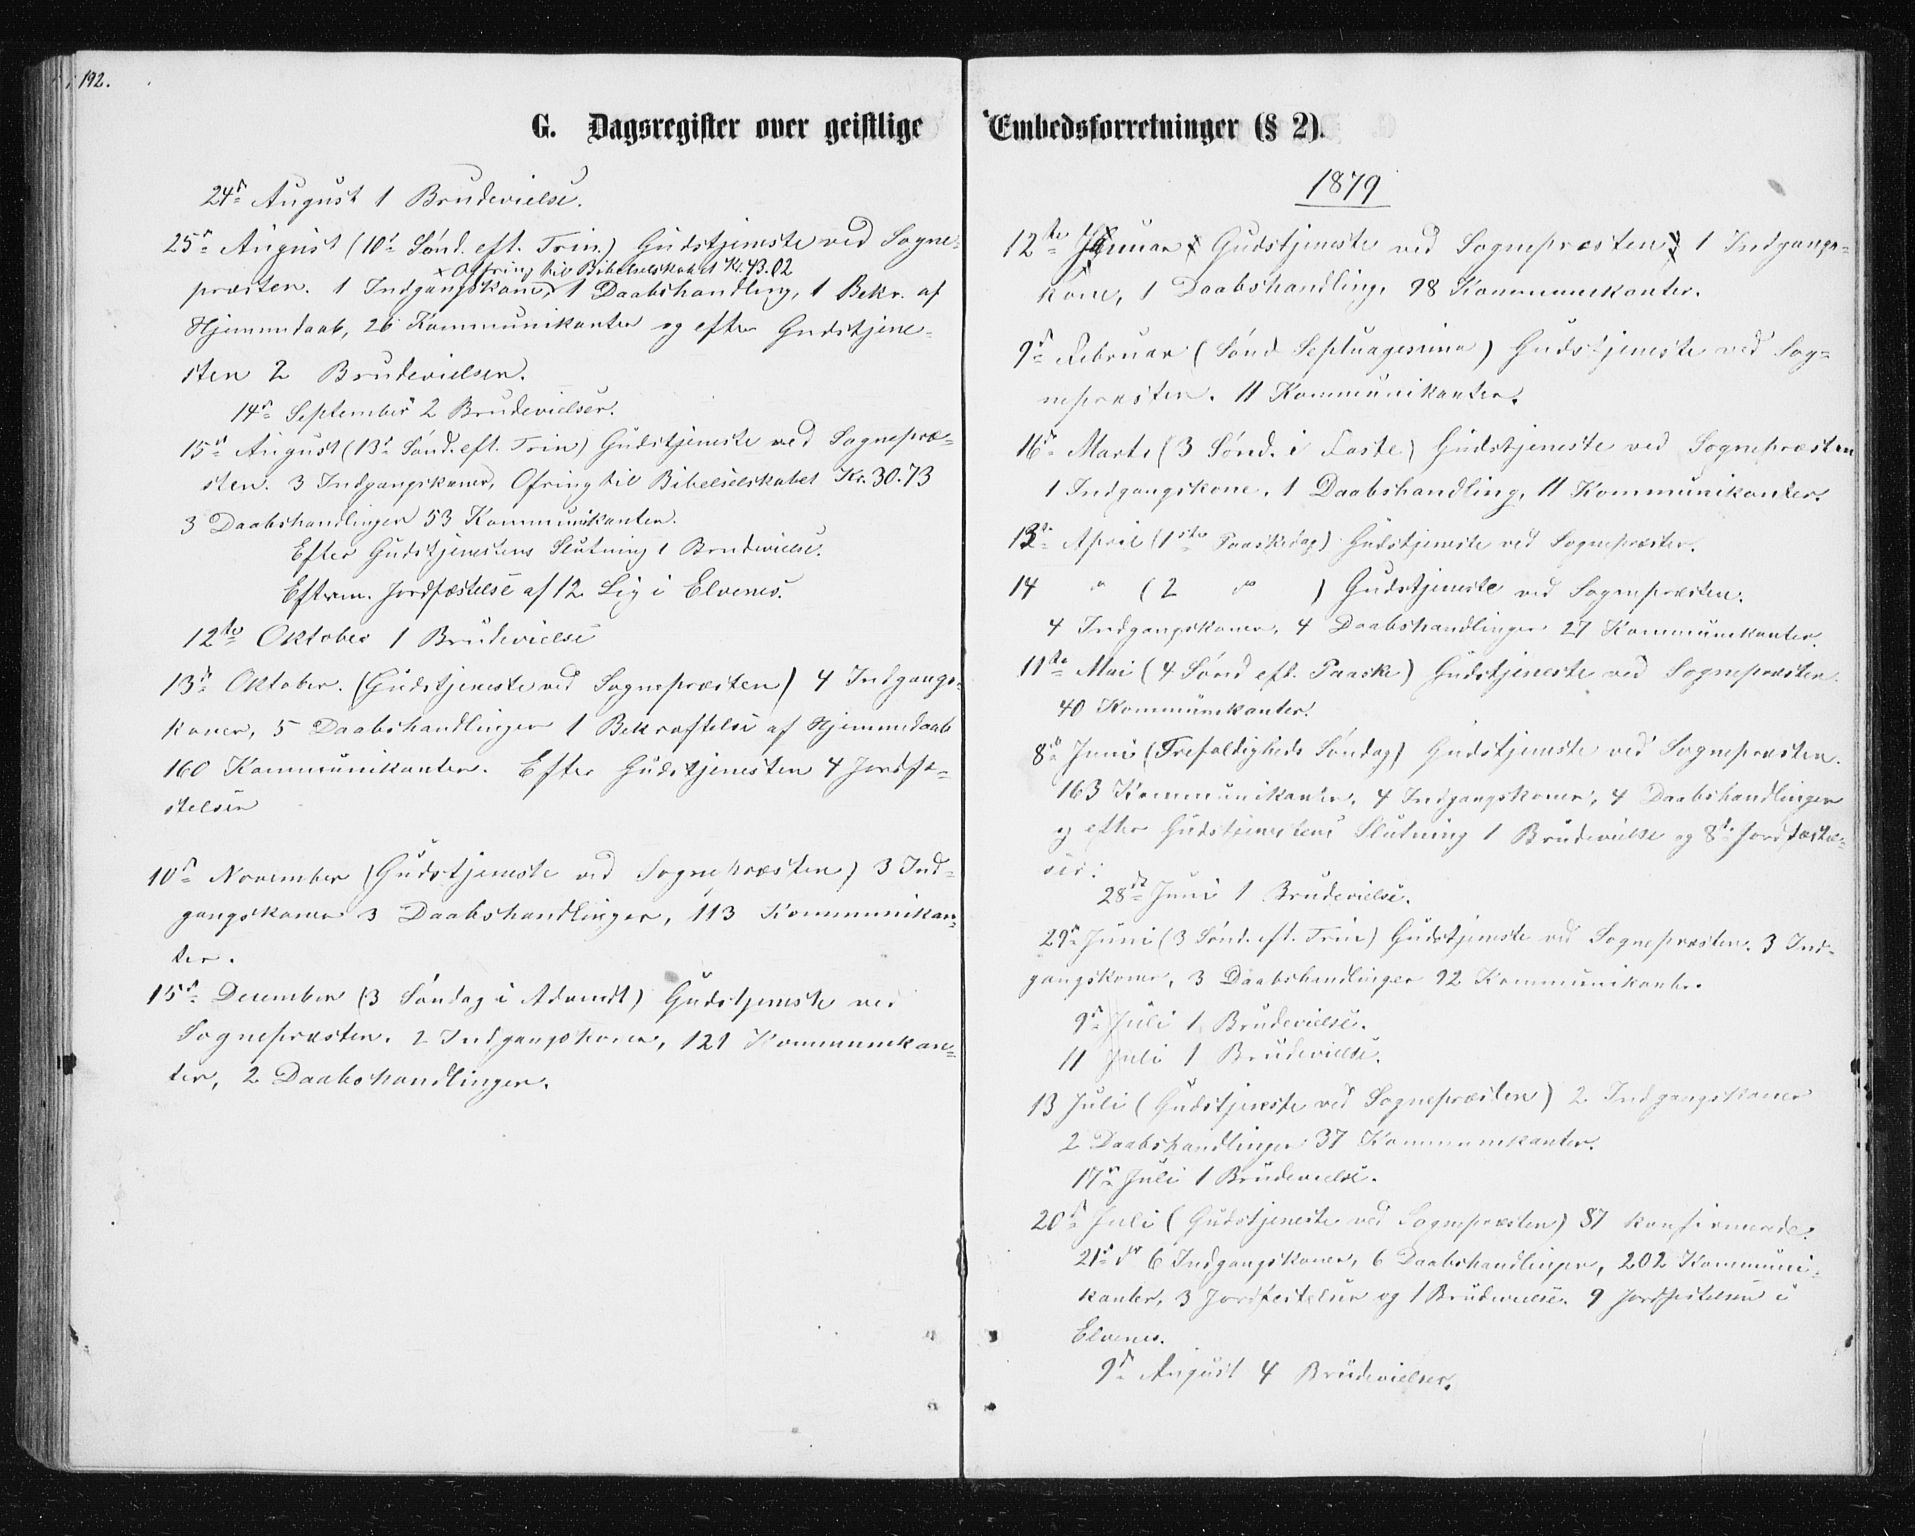 192.
G. Dagsregister over geistlige Embedsforretninger (§ 2).
24de August 1 Brudevielse.
25de August (10de Sønd. eft. Trin.) Gudstjeneste ved Sogne-
x Ofring til Bibelselskabet Kr. 43.02
præsten. 1 Indgangskone, x 1 Daabshandling, 1 Bekr. af
Hjemmedaab, 26 Kommunikanter og efter Gudstjene-
sten 2 Brudevielser.
14de September 2 Brudevielser.
15de August (13de Sønd. eft. Trin) Gudstjeneste ved Sognepræ-
sten. 3 Indgangskoner, Ofring til Bibelselskabet Kr. 30.73
3 Daabshandlinger 53 Kommunikanter.
Efter Gudstjenestens Slutning 1 Brudevielse.
Efterm. Jordfæstelse af 12 Lig i Elvenes.
12te Oktober 1 Brudevielse
13de Oktober. (Gudstjeneste ved Sognepræsten) 4 Indgangs-
koner, 5 Daabshandlinger 1 Bekræftelse af Hjemmedaab
160 Kommunikanter. Efter Gudstjenesten 4 Jordfæ-
stelser
10de November (Gudstjeneste ved Sognepræsten) 3 Ind-
gangskoner 3 Daabshandlinger, 113 Kommunikan-
ter.
15de December (3 Søndag i Advendt) Gudstjeneste ved
Sognepræsten. 2 Indgangskoner, 121 Kommunikan-
ter, 2 Daabshandlinger.
1879
12te Januar Gudstjeneste ved Sognepræsten, 1 Indgangs-
kone, 1 Daabshandling, 98 Kommunikanter.
9de Februar (Sønd Septuagesima) Gudstjeneste ved Sog-
nepræsten. 11 Kommunikanter.
16de Marts (3 Sønd. i Faste) Gudstjeneste ved Sognepræsten
1 Indgangskone, 1 Daabshandling, 11 Kommunikanter.
13de April (1ste Paaskedag) Gudstjeneste ved Sognepræsten.
14 " (2 do ) Gudstjeneste ved Sognepræsten.
4 Indgangskoner, 4 Daabshandlinger 27 Kommunikanter.
11te Mai (4 Sønd eft. Paaske) Gudstjeneste ved Sognepræsten.
40 Kommunikanter.
8de Juni (Trefoldigheds Søndag) Gudstjeneste ved Sognepræsten.
163 Kommunikanter, 4 Indgangskoner, 4 Daabshandlinger
og efter Gudstjenestens Slutning 1 Brudevielse og 8 Jordfæstel-
ser.
28de Juni 1 Brudevielse.
29de Juni (3 Sønd. eft. Trin) Gudstjeneste ved Sognepræsten. 3 Ind-
gangskoner, 3 Daabshandlinger 92 Kommunikanter.
9de Juli 1 Brudevielse.
11 Juli 1 Brudevielse.
13 Juli (Gudstjeneste ved Sognepræsten) 2 Indgangskoner
2 Daabshandlinger 37 Kommunikanter.
17de Juli 1 Brudevielse.
20de Juli (Gudstjeneste ved Sognepræsten) 37 konfirmerede.
21de do 6 Indgangskoner, 6 Daabshandlinger, 202 Kommuni-
kanter, 3 Jordfestelser og 1 Brudevielse. 9 Jordfestelser i
Elvenes.
9de August 4 Brudevielser.